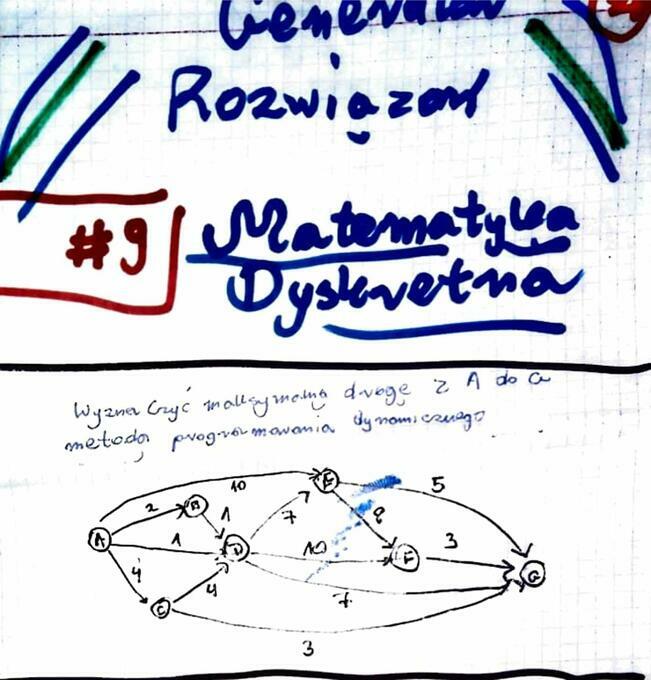 Generator
Rozwiązań
#9
Matematyka
Dyskretna
Wyznaczyć maksymalną drogę z A do G
metodą programowania dynamicznego
10
E
5
2
B
1
7
8
A
1
D
10
F
3
G
4
4
7
C
3